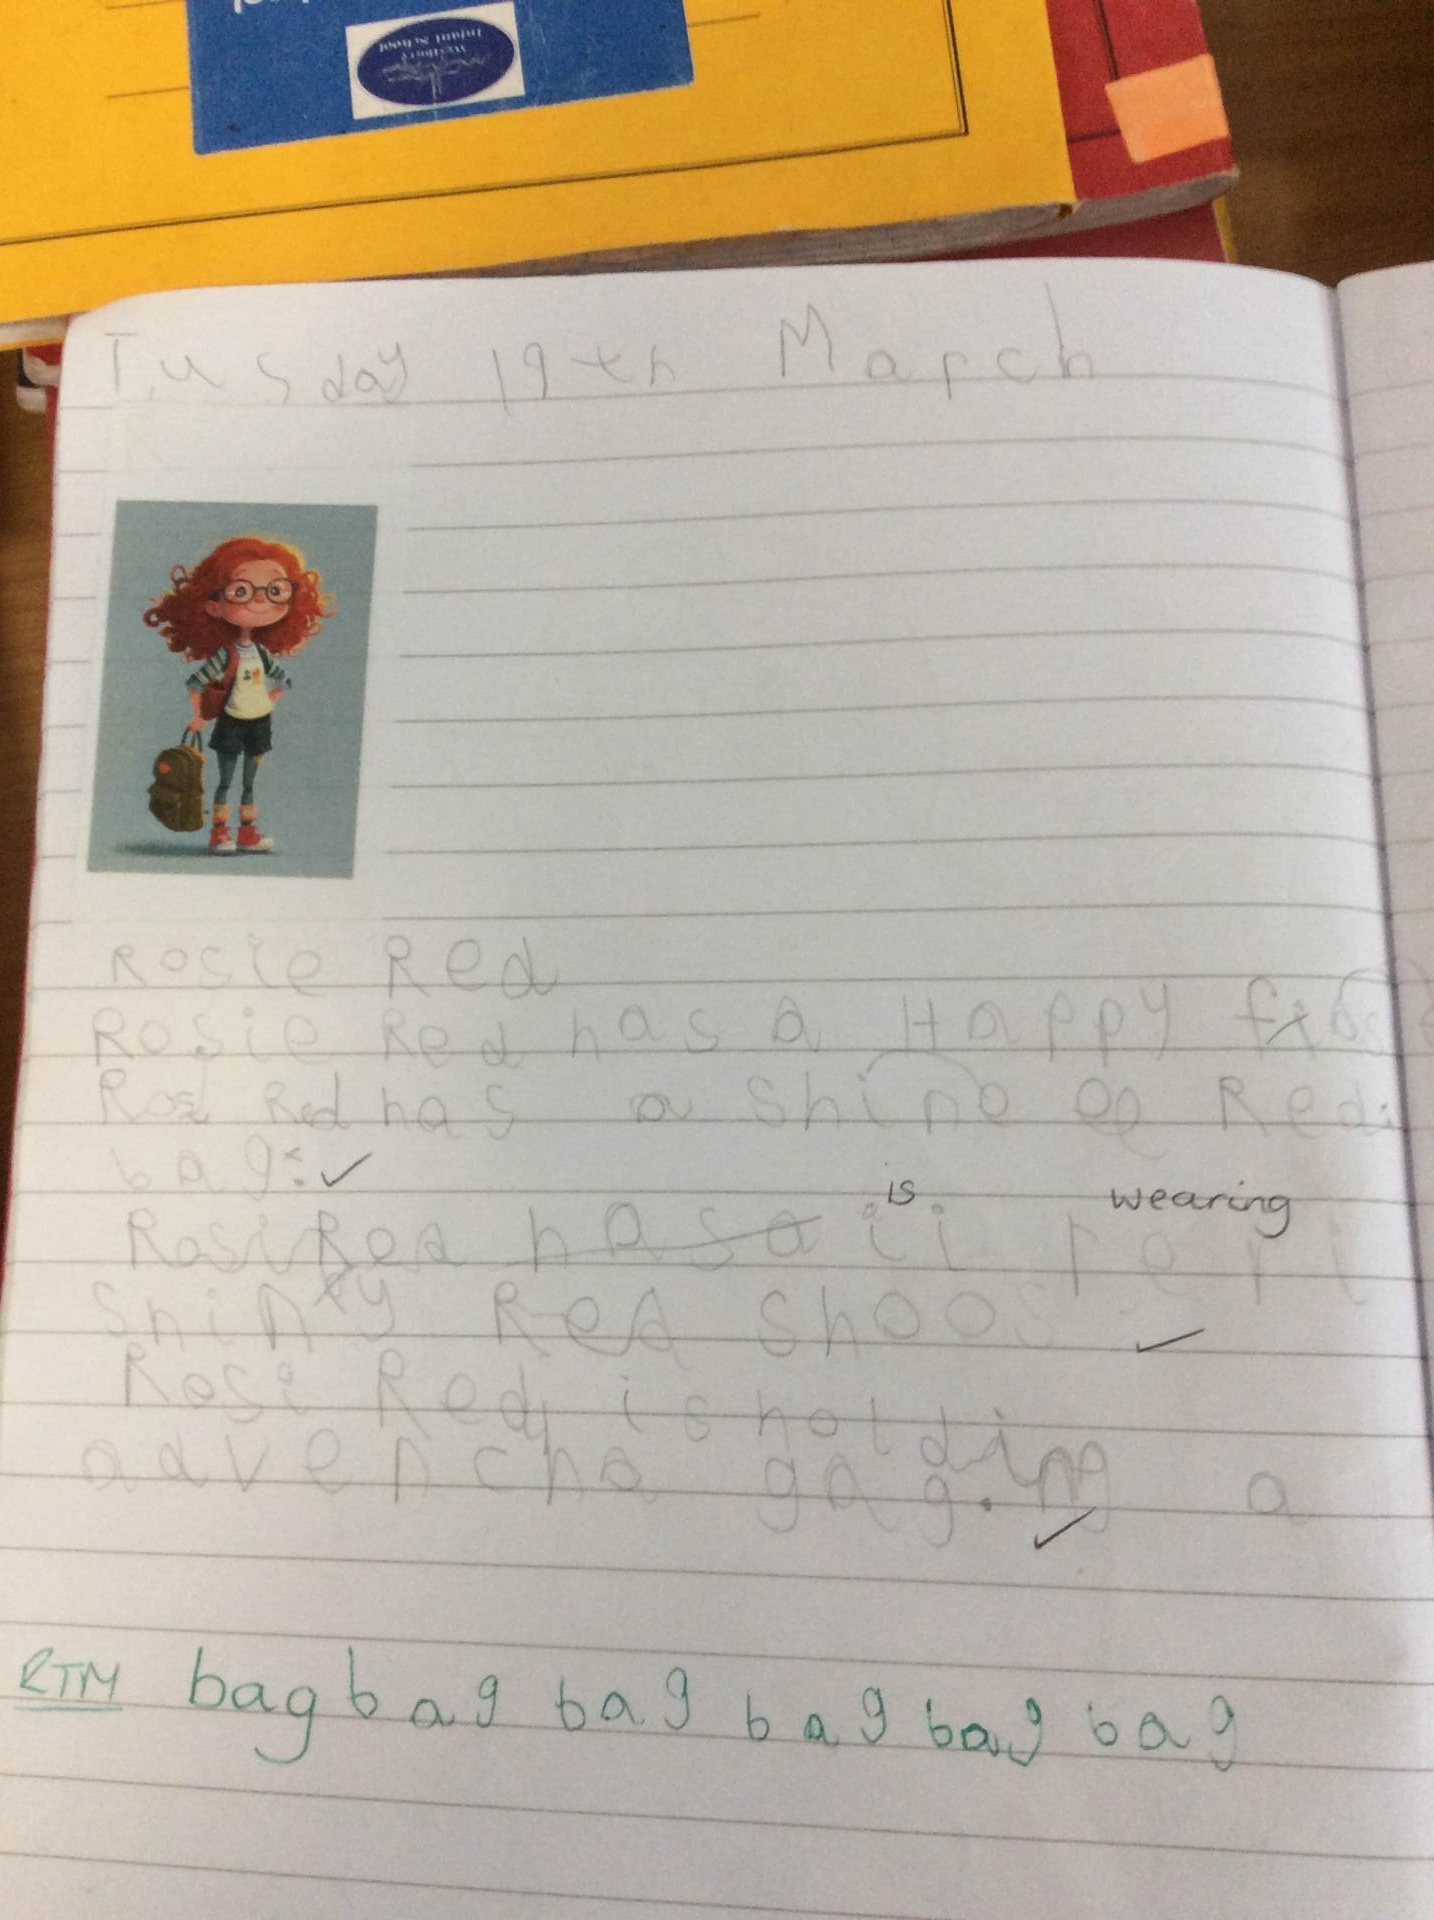 Westbury
Infant School
Tusday 19th March
Rosie Red
Rosie Red has a Happy
Rosi Red has a Shine Red
bag. ✓
is wearing
Rosi Red has a ii
Shiny Red Shoos ✓
Rosi Red is holding a
advencha gag. ✓
RTM bag bag bag bag bag bag